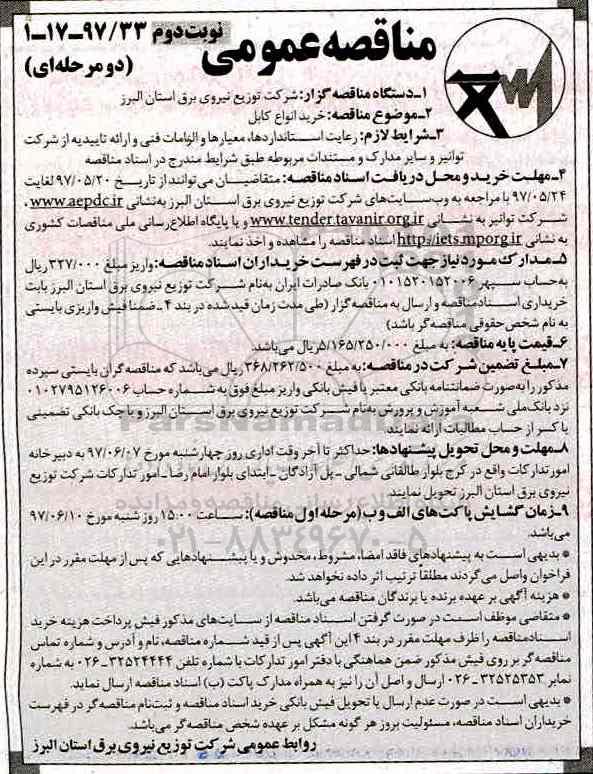 مناقصه عمومی
نوبت دوم ۹۷/۳۳-۱۷-۱
(دو مرحله‌ای)
۱ـ دستگاه مناقصه گزار: شرکت توزیع نیروی برق استان البرز
۲ـ موضوع مناقصه: خرید انواع کابل
۳ـ شرایط لازم: رعایت استانداردها، معیارها و الزامات فنی و ارائه تاییدیه از شرکت
توانیر و سایر مدارک و مستندات مربوطه طبق شرایط مندرج در اسناد مناقصه
۴ـ مهلت خرید و محل دریافت اسناد مناقصه: متقاضیان می‌توانند از تاریخ ۹۷/۰۵/۲۰ لغایت
۹۷/۰۵/۲۴ با مراجعه به وب‌سایت‌های شرکت توزیع نیروی برق استان البرز به‌نشانی www.aepdc.ir،
شرکت توانیر به نشانی www.tender.tavanir.org.ir و یا پایگاه اطلاع‌رسانی ملی مناقصات کشوری
به نشانی http://iets.mporg.ir اسناد مناقصه را مشاهده و اخذ نمایند.
۵ـ مدارک مورد نیاز جهت ثبت در فهرست خریداران اسناد مناقصه: واریز مبلغ ۳۲۷/۰۰۰ ریال
به‌حساب سپهر ۰۱۰۱۵۲۰۱۵۲۰۰۶ بانک صادرات ایران به‌نام شرکت توزیع نیروی برق استان البرز بابت
خریداری اسناد مناقصه و ارسال به مناقصه گزار (طی مدت زمان قید شده در بند ۴ ـ ضمنا فیش واریزی بایستی
به نام شخص حقوقی مناقصه گر باشد)
۶ـ قیمت پایه مناقصه: به مبلغ ۵/۱۶۵/۲۵۰/۰۰۰ ریال می‌باشد.
۷ـ مبلغ تضمین شرکت در مناقصه: به مبلغ ۳۶۸/۲۶۲/۵۰۰ ریال می‌باشد که مناقصه گران بایستی سپرده
مذکور را به‌صورت ضمانتنامه بانکی معتبر یا فیش بانکی واریز مبلغ فوق به شماره حساب ۰۱۰۲۷۹۵۱۲۶۰۰۶
نزد بانک ملی شعبه آموزش و پرورش به‌نام شرکت توزیع نیروی برق استان البرز و یا چک بانکی تضمینی
یا کسر از حساب مطالبات ارائه نمایند.
۸ـ مهلت و محل تحویل پیشنهادها: حداکثر تا آخر وقت اداری روز چهارشنبه مورخ ۹۷/۰۶/۰۷ به دبیرخانه
امور تدارکات واقع در کرج بلوار طالقانی شمالی ـ پل آزادگان ـ ابتدای بلوار امام رضا ـ امور تدارکات شرکت توزیع
نیروی برق استان البرز تحویل نمایند.
۹ـ زمان گشایش پاکت‌های الف و ب (مرحله اول مناقصه): ساعت ۱۵:۰۰ روز شنبه مورخ ۹۷/۰۶/۱۰
می‌باشد.
* بدیهی است به پیشنهادهای فاقد امضا، مشروط، مخدوش و یا پیشنهادهایی که پس از مهلت مقرر در این
فراخوان واصل می‌گردند مطلقاً ترتیب اثر داده نخواهد شد.
* هزینه آگهی بر عهده برنده یا برندگان مناقصه می‌باشد.
* متقاضی موظف است در صورت گرفتن اسناد مناقصه از سایت‌های مذکور فیش پرداخت هزینه خرید
اسناد مناقصه را ظرف مهلت مقرر در بند ۴ این آگهی پس از قید شماره مناقصه، نام و آدرس و شماره تماس
مناقصه گر بر روی فیش مذکور ضمن هماهنگی با دفتر امور تدارکات با شماره تلفن ۳۲۵۲۴۴۴۴-۰۲۶ به شماره
نمابر ۳۲۵۲۵۳۵۳-۰۲۶ ارسال و اصل آن را نیز به همراه مدارک پاکت (ب) اسناد مناقصه ارسال نماید.
* بدیهی است در صورت عدم ارسال یا تحویل فیش بانکی خرید اسناد مناقصه و ثبت‌نام مناقصه گر در فهرست
خریداران اسناد مناقصه، مسئولیت بروز هر گونه مشکل بر عهده شخص مناقصه گر می‌باشد.
روابط عمومی شرکت توزیع نیروی برق استان البرز
ParsNamad
۰۲۱-۸۸۳۴۹۶۷۰-۵